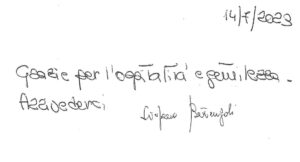 14/7/2023
Grazie per l'ospitalità e gentilezza.
Arrivederci